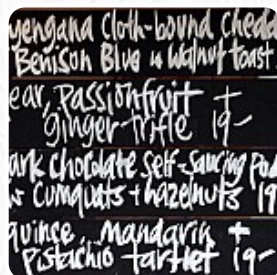 yengana Cloth-bound Cheda
Benison Blue w Walnut toast
ear, Passionfruit +
Ginger Trifle 19-
ark Chocolate Self-Saucing Pud
w Cumquats + hazelnuts 19
quince, Mandarin +
Pistachio tartlet 19-